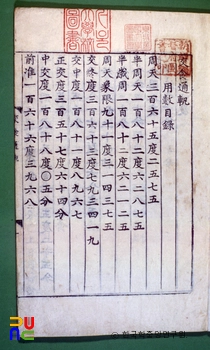 食通軌
用數目錄
周天三百六十五度二五七五
半周天一百八十二度六二八七五
半歲周一百八十二度六二一二五
周天象限九十一度三一四三七五
交終度三百六十三度七九三四一九
交中度一百八十一度八九六七
正交度三百五十七度六十四分
中交度一百八十八度〇五分
前准一百六十六度三九六八
한국학중앙연구원